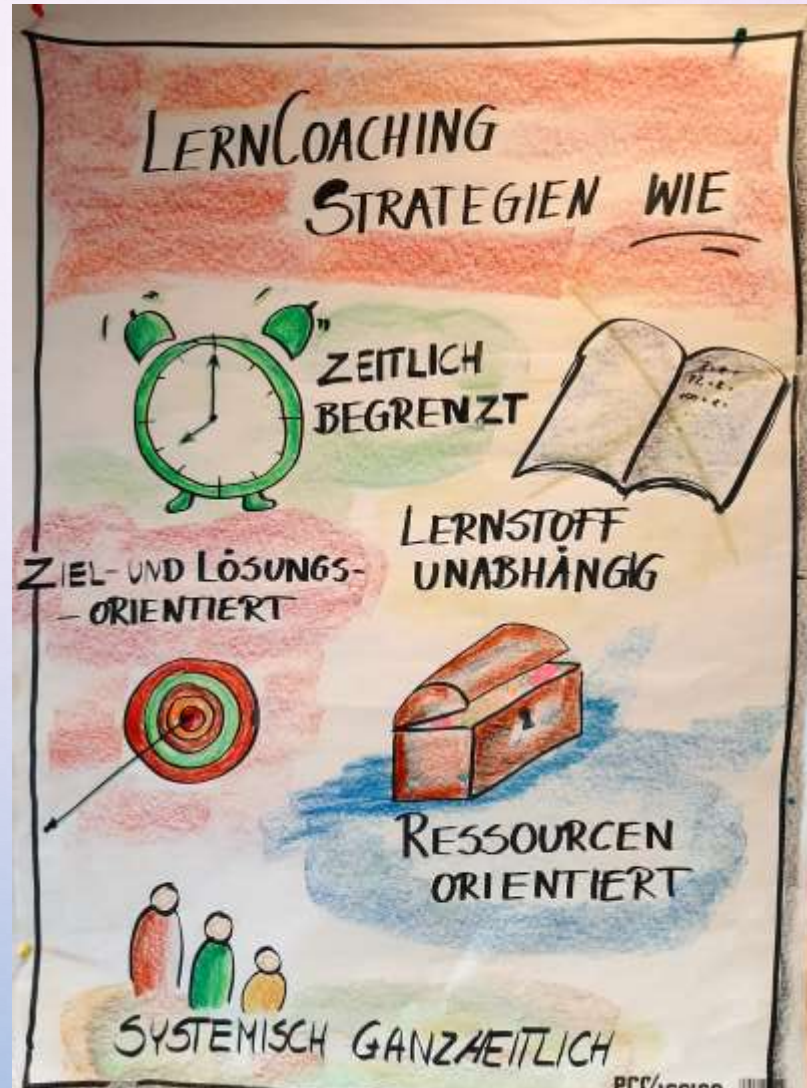 LERNCOACHING
STRATEGIEN WIE
ZEITLICH
BEGRENZT
LERNSTOFF
UNABHÄNGIG
ZIEL- UND LÖSUNGS-
- ORIENTIERT
RESSOURCEN
ORIENTIERT
SYSTEMISCH GANZHEITLICH